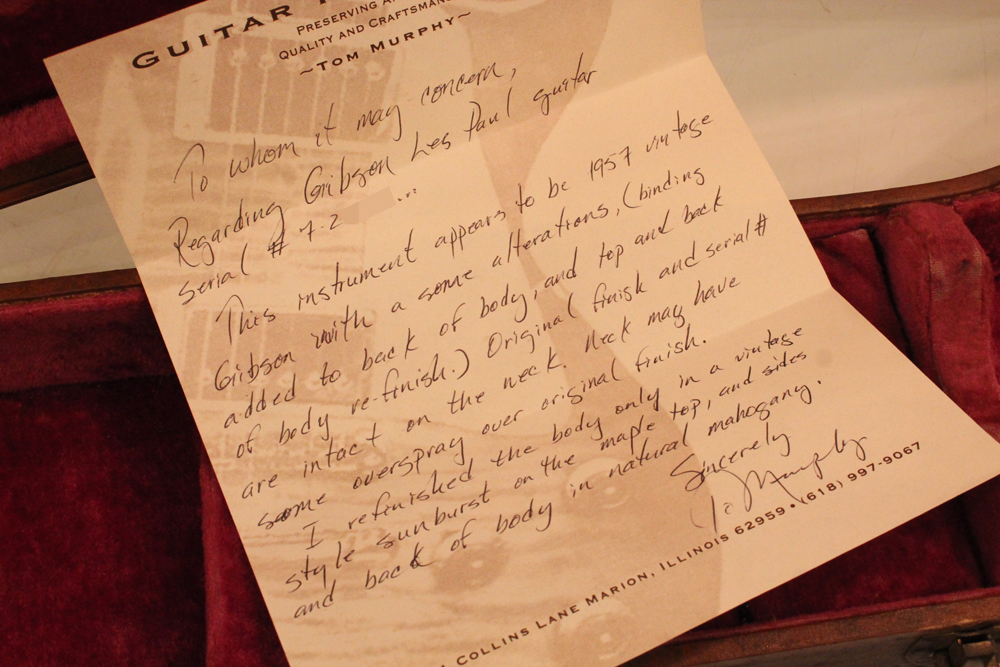 GUITAR
PRESERVING
QUALITY AND CRAFTSMAN
~TOM MURPHY~
To whom it may concern,
Regarding Gibson Les Paul guitar
serial # 7.2 ...
This instrument appears to be 1957 vintage
Gibson with a some alterations, (binding
added to back of body, and top and back
of body re-finish.) Original (finish and serial #
are intact on the neck. Neck may have
some overspray over original finish.
I refinished the body only in a vintage
style sunburst on the maple top, and sides
and back of body in natural mahogany.
Sincerely
Murphy
COLLINS LANE MARION, ILLINOIS 62959 • (618) 997-9067